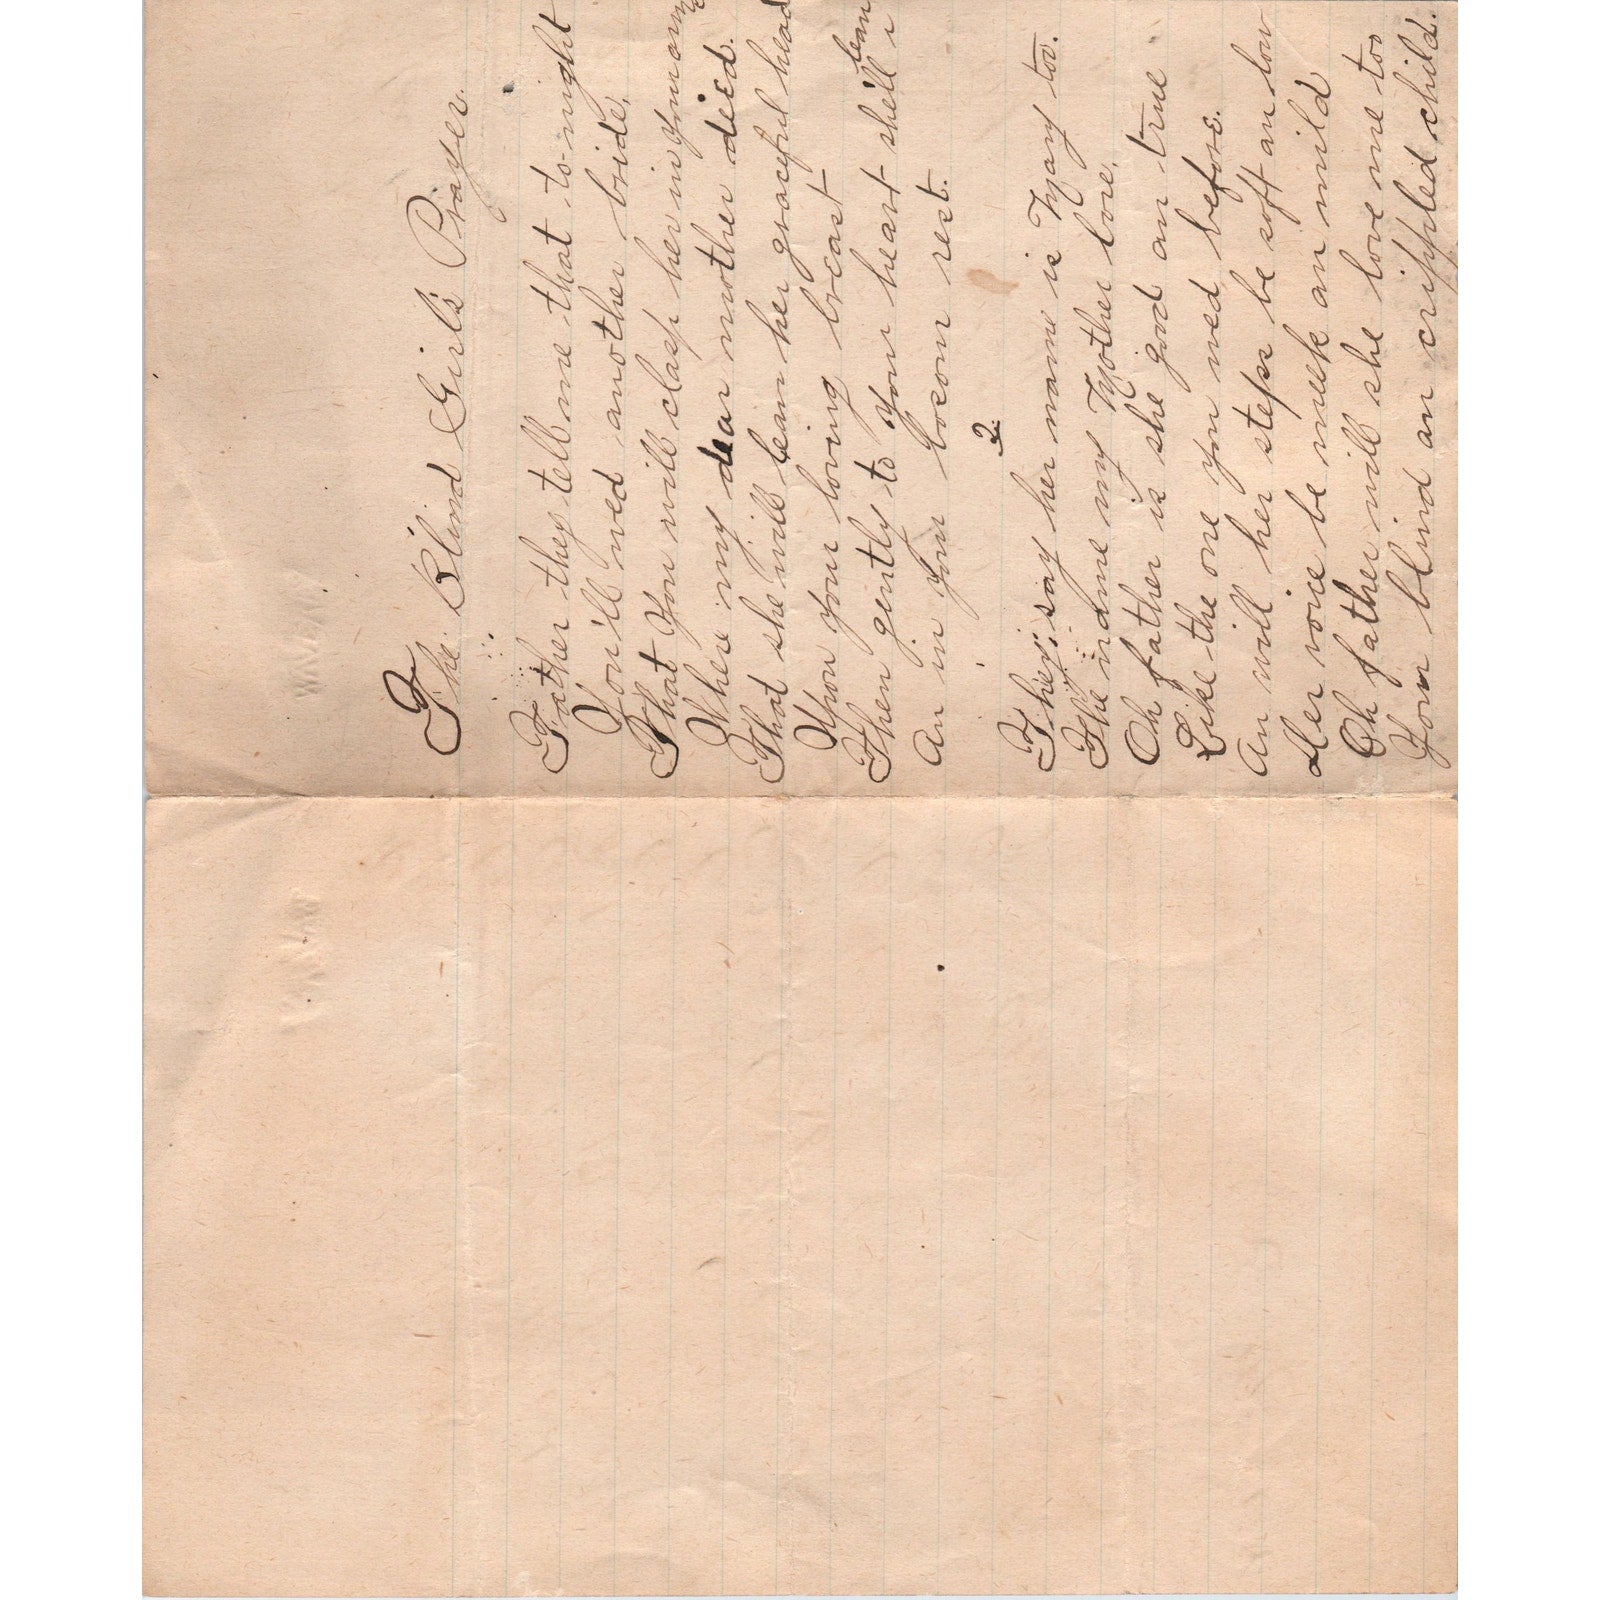 The Blind Girl's Prayer.
Father they tell me that to-night
You'll wed another bride,
That You will clasp her in your arms
Where my dear mother died.
That she will lean her graceful head
Upon your loving breast
Then gently to your heart she'll lean
An in your bosom rest.
2
They say her name is Mary too.
The name my Mother bore,
Oh father is she good an true
Like the one you wed before.
An will her steps be soft an low
Her voice be meek an mild
Oh father will she love me too
Your blind an crippled child.